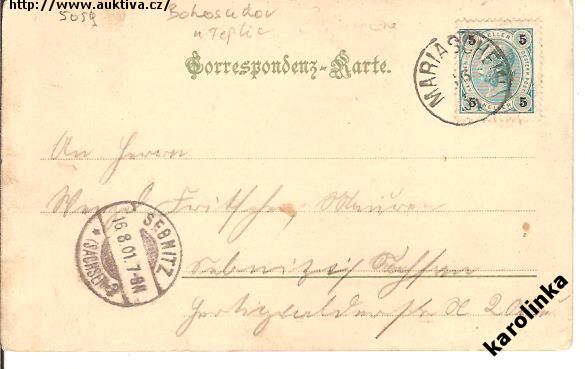 http://www.auktiva.cz/
5059
Bohosudov
u Teplic
Correspondenz-Karte.
MARIASCHEIN
5 5
HELLER
5 5
An Herrn
Wenzel Fritsche, Maurer
SEBNITZ
16.8.01.7-8N
*(SACHSEN)
Sebnitz i/ Sachsen
karolinka